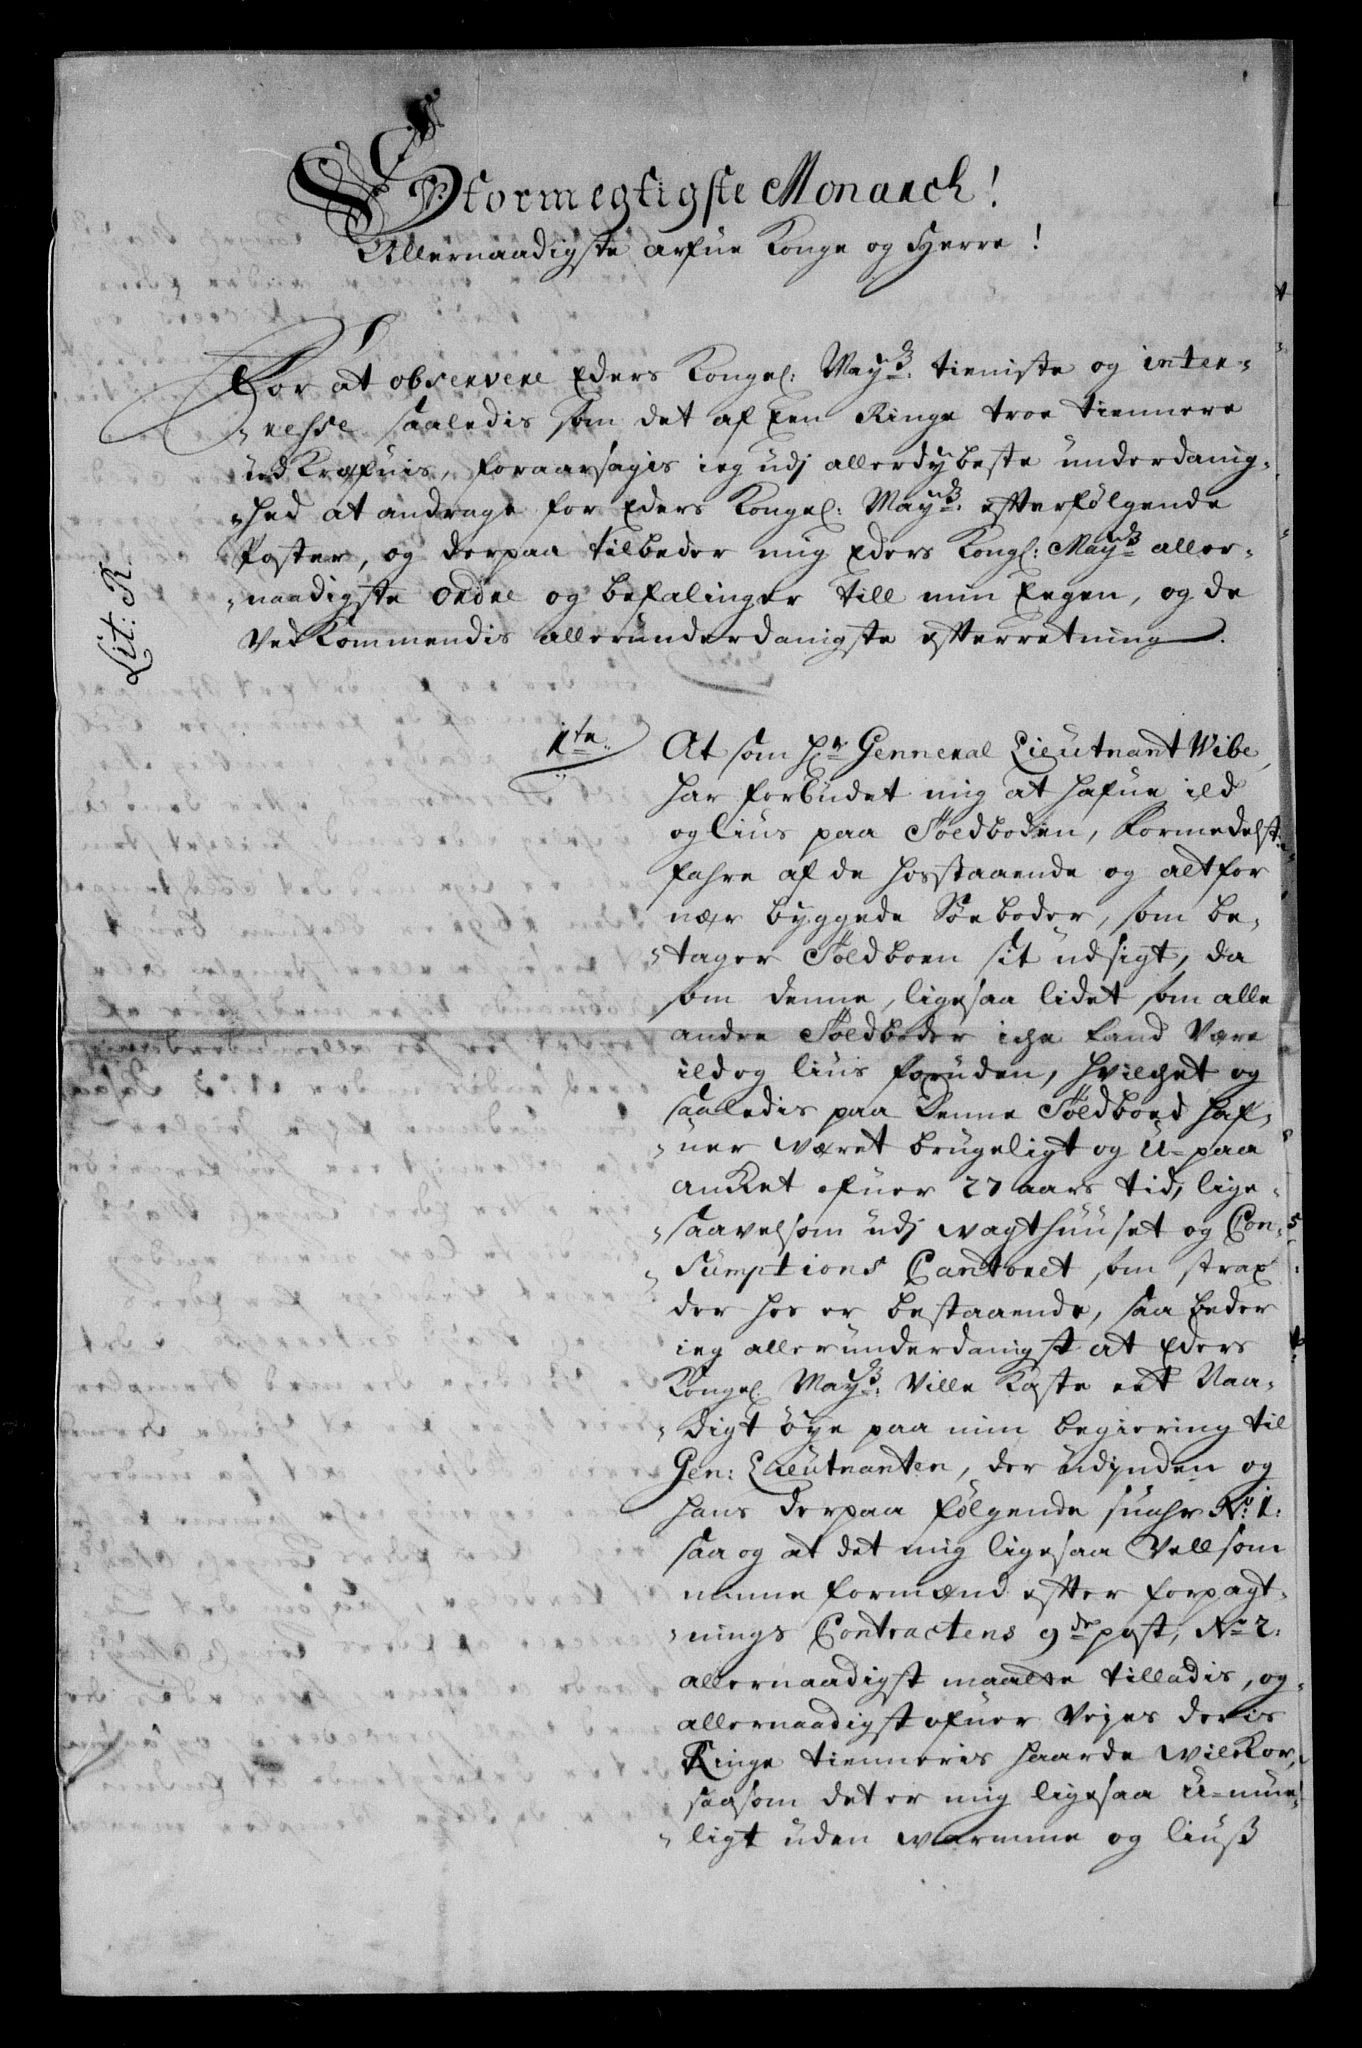 Stormegtigste Monarch!
Allernaadigste arfue Konge og Herre!
For at observere Eders Kongel: Mayts: tieniste og inter-
-resse saaledis som det af Een Ringe troe tiennere
udKræfuis, foraarsagis ieg udj allerdybeste underdanig-
-hed at andrage for Eders Kongel: Mayts: efterfølgende
Poster, og derpaa tilbeder mig Eders Kongl: Mayts aller-
-naadigste Ordre og befalinger till min Eegen, og de
VedKommendis allerunderdanigste efterretning.
Lit: R.
1te
At som Hr Genneral Lieutnant Wibe,
har forbudet mig at hafue ild
og lius paa Toldboden, formedelst
fahre af de hosstaaende og alt for
nær byggede Søeboder, som be-
-tager Toldboen sit udsigt, da
som denne, ligesaa lidet som alle
andre Toldboder iche kand Være
ild og lius foruden, hvilchet og
saaledis paa denne Toldboed haf-
-uer været brugeligt og U-paa
anket ofuer 27 aars tid, lige-
-saavelsom udj wagthuuset og Con-
-sumptions Cantoret som strax
der hos er bestaaende, saa beder
ieg allerunderdanigst at Eders
Kongel Mayts: Ville Kaste eet Naa-
-digt øye paa min begiering til
Gen: Lieutnanten, der udjnden og
hans derpaa følgende suahr No: 1:
saa og at det mig ligesaa Vell som
minne formænd efter forpagt-
-nings Contractens 9de post, No 2:
allernaadigst maatte tilladis, og
allernaadigst ofuer Vejes deris
Ringe tienneris haarde wilkor,
saasom det er mig ligesaa U-mue-
-ligt uden warmme og liuss